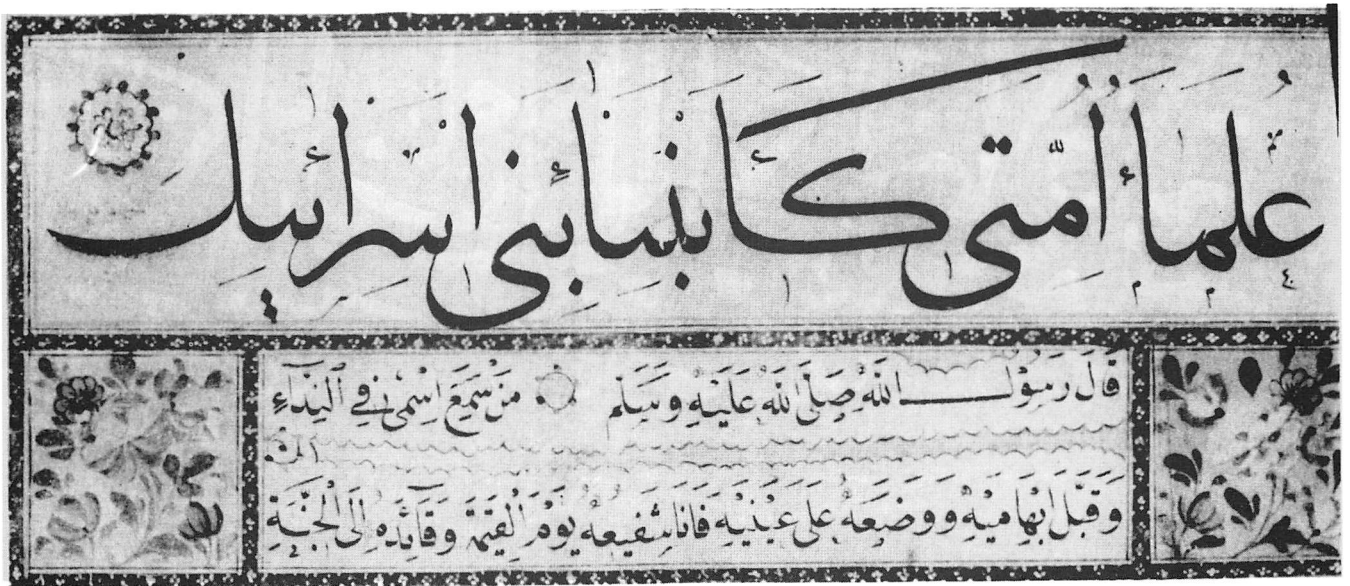 عُلَمَاءُ اُمَّتِى كَاَنْبِيَاءِ بَنِى اِسْرَائِيلَ
قَالَ رَسُوْلُ اللهِ صَلَّى اللهُ عَلَيْهِ وَسَلَّمَ مَنْ سَمِعَ اِسْمِىْ فِى النِّدَاءِ
وَقَبَّلَ اِبْهَامَيْهِ وَوَضَعَهُ عَلَى عَيْنَيْهِ فَاَنَا شَفِيْعُهُ يَوْمَ الْقِيٰمَةِ وَقَائِدُهُ اِلَى الْجَنَّةِ